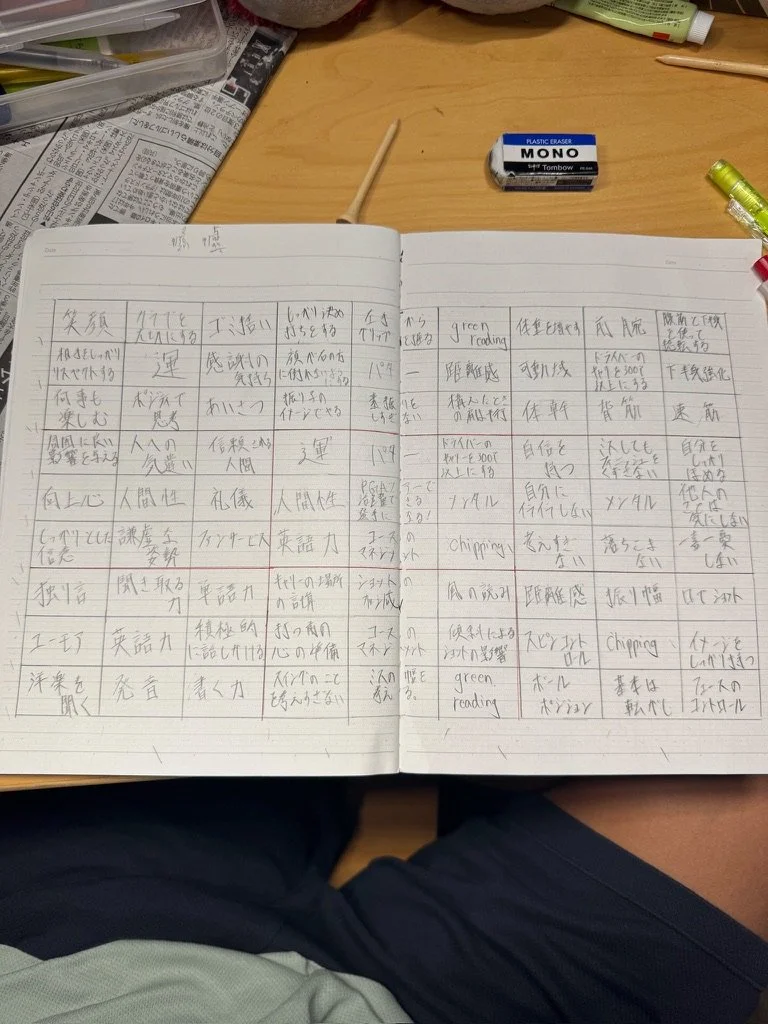 PLASTIC ERASER
MONO
Tombow
Date
笑顔
クラブを
大切にする
ゴミ拾い
しっかり決め
打ちをする
green
reading
体重を増やす
右腕
相手をしっかり
リスペクトする
運
感謝の
気持ち
パター
距離感
可動域
ドライバーの
キャリーを300Y
以上にする
下半身強化
何事も
楽しむ
ポジティブ
思考
あいさつ
振り子の
イメージでやる
体幹
背筋
速筋
周囲に良い
影響を与える
人への
気遣い
信頼される
人間
運
パター
ドライバーの
キャリーを300Y
以上にする
自信を
持つ
自分を
しっかり
ほめる
向上心
人間性
礼儀
人間性
メンタル
自分に
イライラしない
メンタル
他人の
ことは
気にしない
しっかりとした
信念
謙虚な
姿勢
ファンサービス
英語力
コース
マネジメント
chipping
考えすぎ
ない
落ちこま
ない
一喜一憂
しない
独り言
聞き取る
力
単語力
キャリーの場所
の計算
風の読み
距離感
振り幅
ロブショット
ユーモア
英語力
積極的
に話しかける
打つ前の
心の準備
コース
マネジメント
傾斜による
ショットの影響
スピンコント
ロール
chipping
イメージを
しっかり持つ
洋楽を
聞く
発音
書く力
スイングのこと
を考えすぎない
green
reading
ボール
ポジション
基本は
転がし
フェースの
コントロール